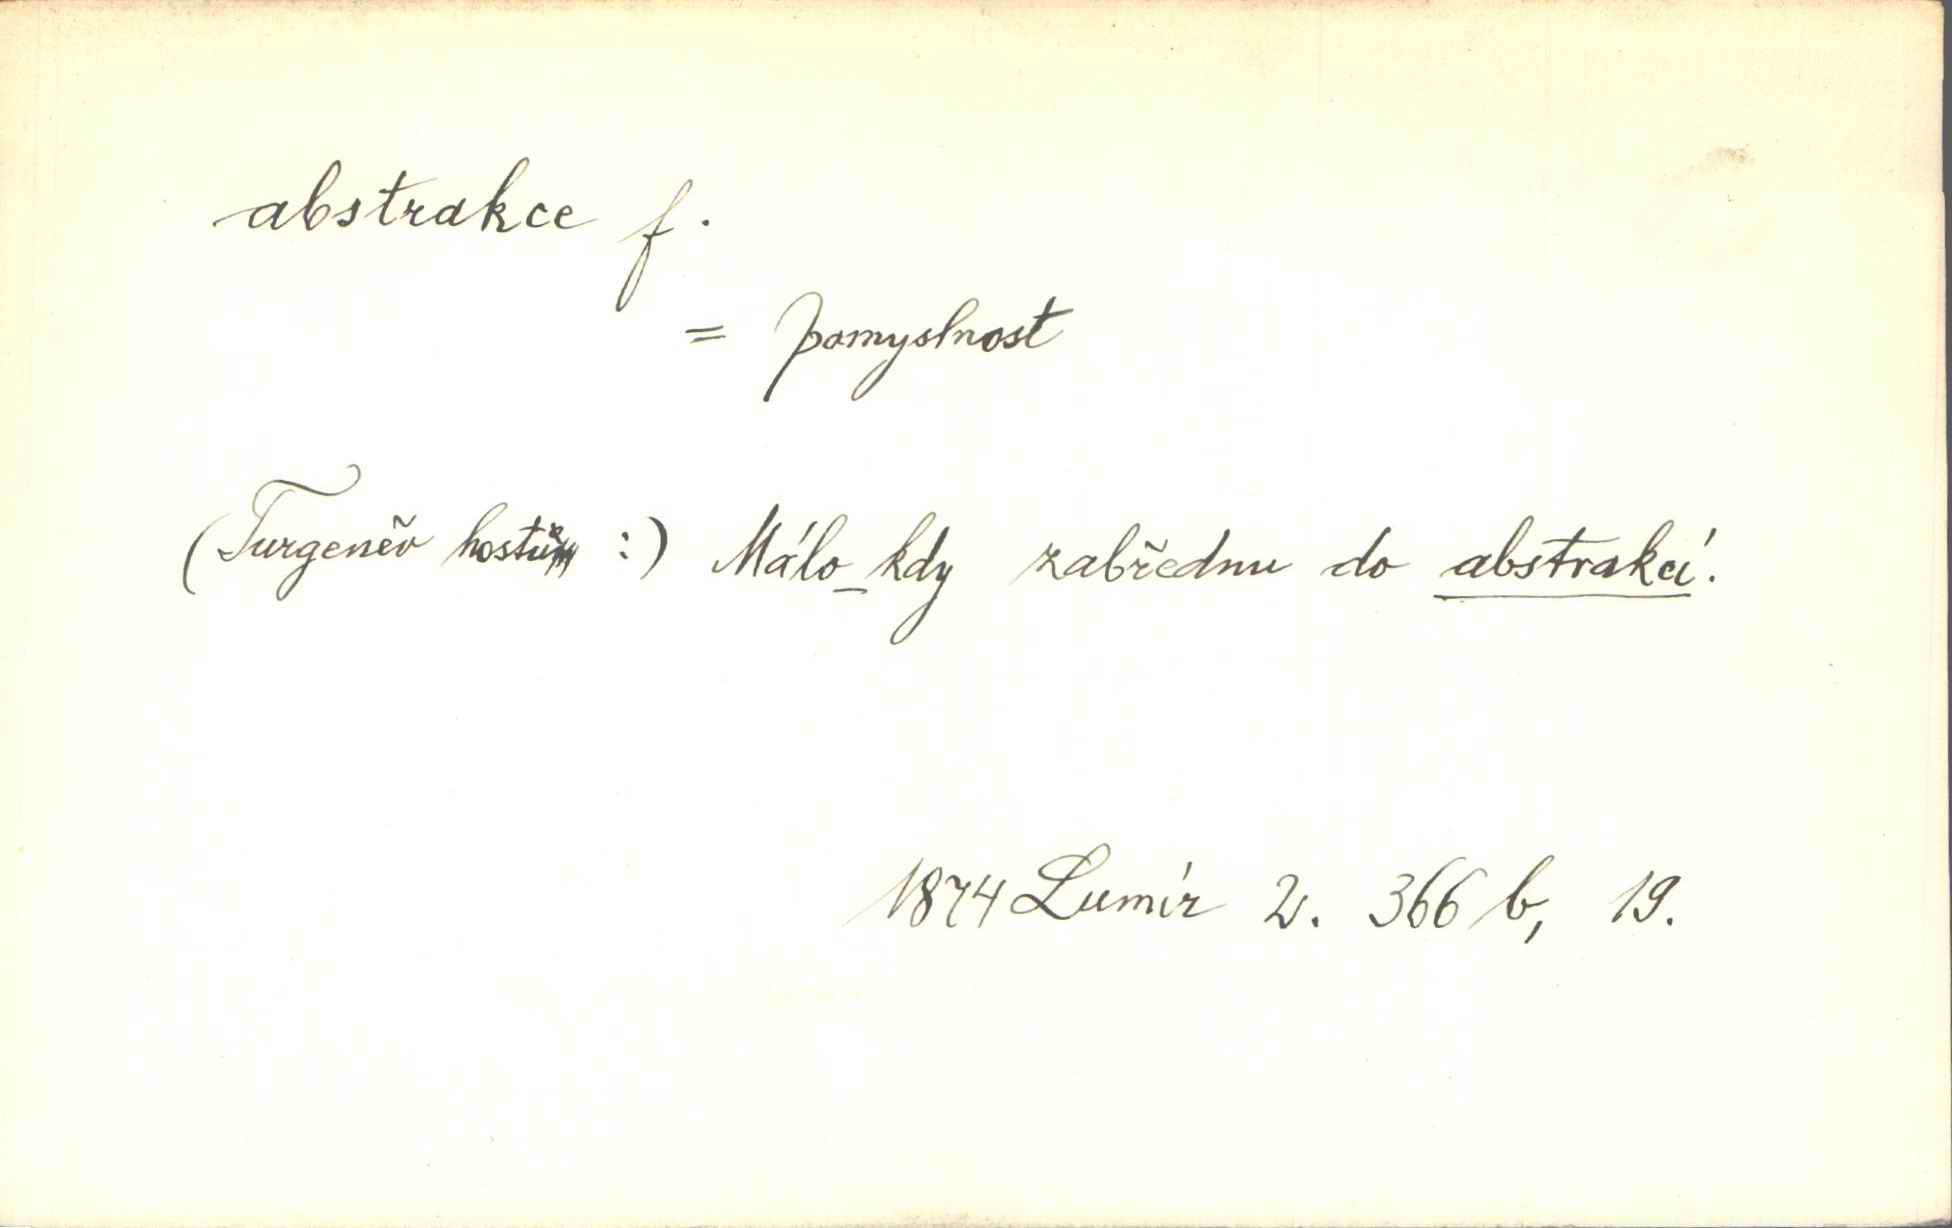 abstrakce f.
= pomyslnost
(Turgeněv hostům :) Málo_kdy zabřednu do abstrakcí.
1874 Lumír 2. 366 b, 19.